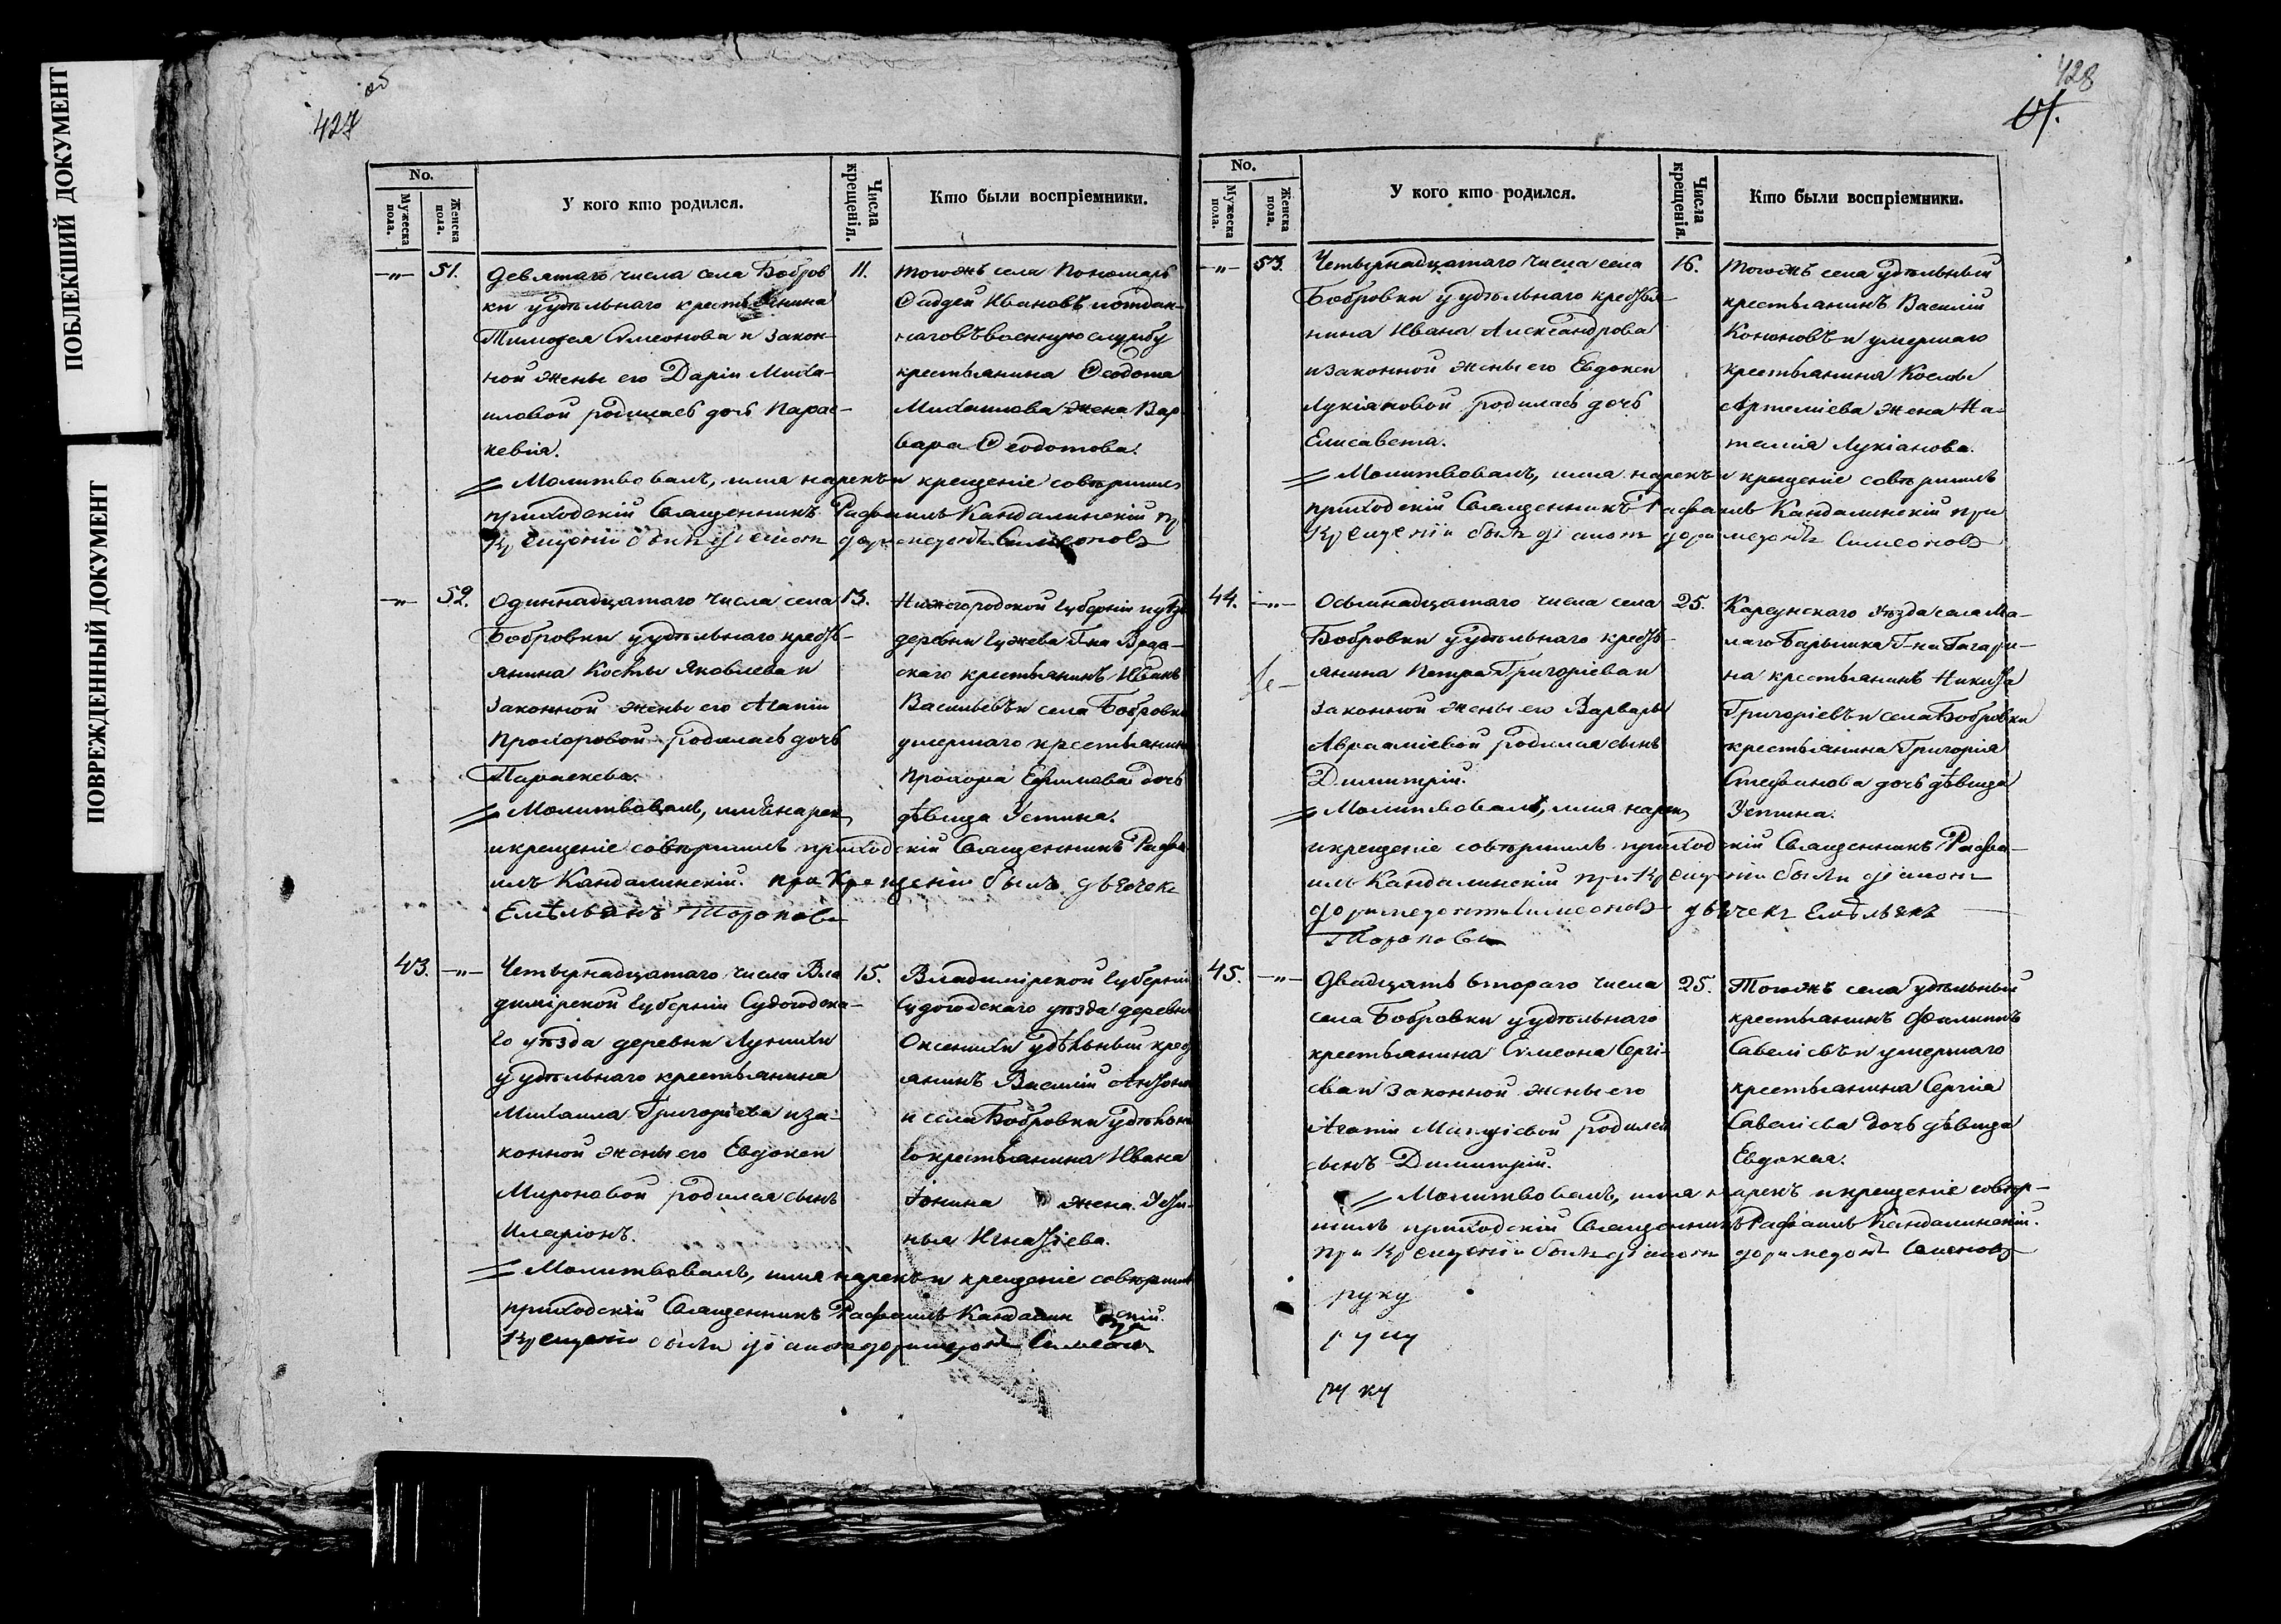 ПОБЛЕКШИЙ ДОКУМЕНТ
ПОВРЕЖДЕННЫЙ ДОКУМЕНТ
427 об
No.
Мужеска пола.
Женска пола.
У кого кто родился.
Числа крещенія.
Кто были воспріемники.
-"- 51.
Девятаго числа села Бобров
ки у удѣльнаго крестьянина
Тимофея Симеонова и закон-
ной жены его Даріи Михаи-
иловой родилась дочь Парас-
кевія.
11.
тогожъ села Пономарь
Фаддей Ивановъ и отдан-
наго въ военную службу
крестьянина Ѳеодота
Михаилова жена Вар
вара Ѳеодотова.
Молитвовалъ, имя нарекъ и крещеніе совершилъ
приходскій Священникъ Рафаилъ Кандалинскій пр
крещеніи былъ діаконъ Доримедонтъ Симеоновъ
-"- 52.
Одиннадцатаго числа села
Бобровки у удѣльнаго кресть-
янина Космы Яковлева и
законной жены его Агапіи
Прохоровой родилась дочь
Параскева.
13.
Нижегородской Губерніи
деревни
скаго крестьянинъ Иванъ
Васильевъ и села Бобровки
умершаго крестьянина
Прохора Ефимова дочь
дѣвица Устина.
Молитвовалъ, имя нарекъ
и крещеніе совершилъ приходскій Священникъ Рафа
илъ Кандалинскій. при Крещеніи былъ дьячекъ
Емѣльянъ Тороповъ
43. -"-
Четырнадцатаго числа Вла
димірской Губерніи Судогодска-
го уѣзда деревни Лунихи
у удѣльнаго крестьянина
Михаила Григорьева и за-
конной жены его Евдокеи
Мироновой родился сынъ
Иларіонъ.
15.
Владимірской Губерніи
Судогодскаго уѣзда деревни
Оксенихи удѣльный крес
янинъ Василій
и села Бобровки удѣльна
го крестьянина Ивана
Іонина жена Усти-
нья Игнатіева.
Молитвовалъ, имя нарекъ и крещеніе совершилъ
приходскій Священникъ Рафаилъ Кандалинскій.
Крещеніи былъ діаконъ Доримедонтъ Симеонов
428
No.
Мужеска пола.
Женска пола.
У кого кто родился.
Числа крещенія.
Кто были воспріемники.
-"- 53.
Четырнадцатаго числа села
Бобровки у удѣльнаго крестья-
нина Ивана Александрова
и законной жены его Евдокеи
Лукіановой родилась дочь
Елисавета.
16.
тогожъ села удѣльный
крестьянинъ Василій
Кононовъ и умершаго
крестьянина Космы
Артеміева жена На-
талія Лукіанова.
Молитвовалъ, имя нарекъ и крещеніе совершилъ
приходскій Священникъ Рафаилъ Кандалинскій при
Крещеніи былъ діаконъ Доримедонтъ Симеоновъ
44. -"-
Осьмнадцатаго числа села
Бобровки у удѣльнаго кресть-
янина Петра Григоріева и
законной жены его Варвары
Авраамієвой родился сынъ
Димитрій.
25.
Карсунскаго уѣзда села Ма-
лаго Барышка Г-на Гагари-
на крестьянинъ Никита
Григоріевъ и села Бобровки
крестьянина Григорія
Стефанова дочь дѣвица
Устина.
Молитвовалъ, имя нарекъ
и крещеніе совершилъ приходскій Священникъ Рафа-
илъ Кандалинскій при Крещеніи были діаконъ
Доримедонтъ Симеоновъ дьячекъ Емѣльянъ
Тороповъ
45. -"-
Двадцать втораго числа
села Бобровки у удѣльнаго
крестьянина Симеона Сергі-
ева и законной жены его
Агапіи родился
сынъ Димитрій.
25.
Тогожъ села удѣльный
крестьянинъ Филиппъ
Савеліевъ и умершаго
крестьянина Сергія
Савеліева дочь дѣвица
Евдокея.
Молитвовалъ, имя нарекъ и крещеніе совер-
шилъ приходскій Священникъ Рафаилъ Кандалинскій.
при Крещеніи былъ діаконъ Доримедонтъ Симеоновъ
руку
руку
руку